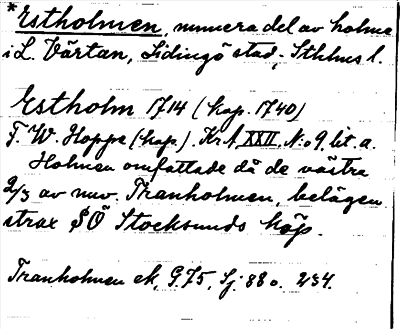 *Estholmen, numera del av holme
i L. Värtan, Lidingö stad, Sthlms l.
Estholm 1714 (kop. 1740)
F. W. Hoppe (kop.). KrA XXII, N:o 9. lit. a.
Holmen omfattade då de västra
2/3 av nuv. Tranholmen, belägen
strax SÖ Stocksunds köp.
Tranholmen ek. 975, Sj. 880. 234.